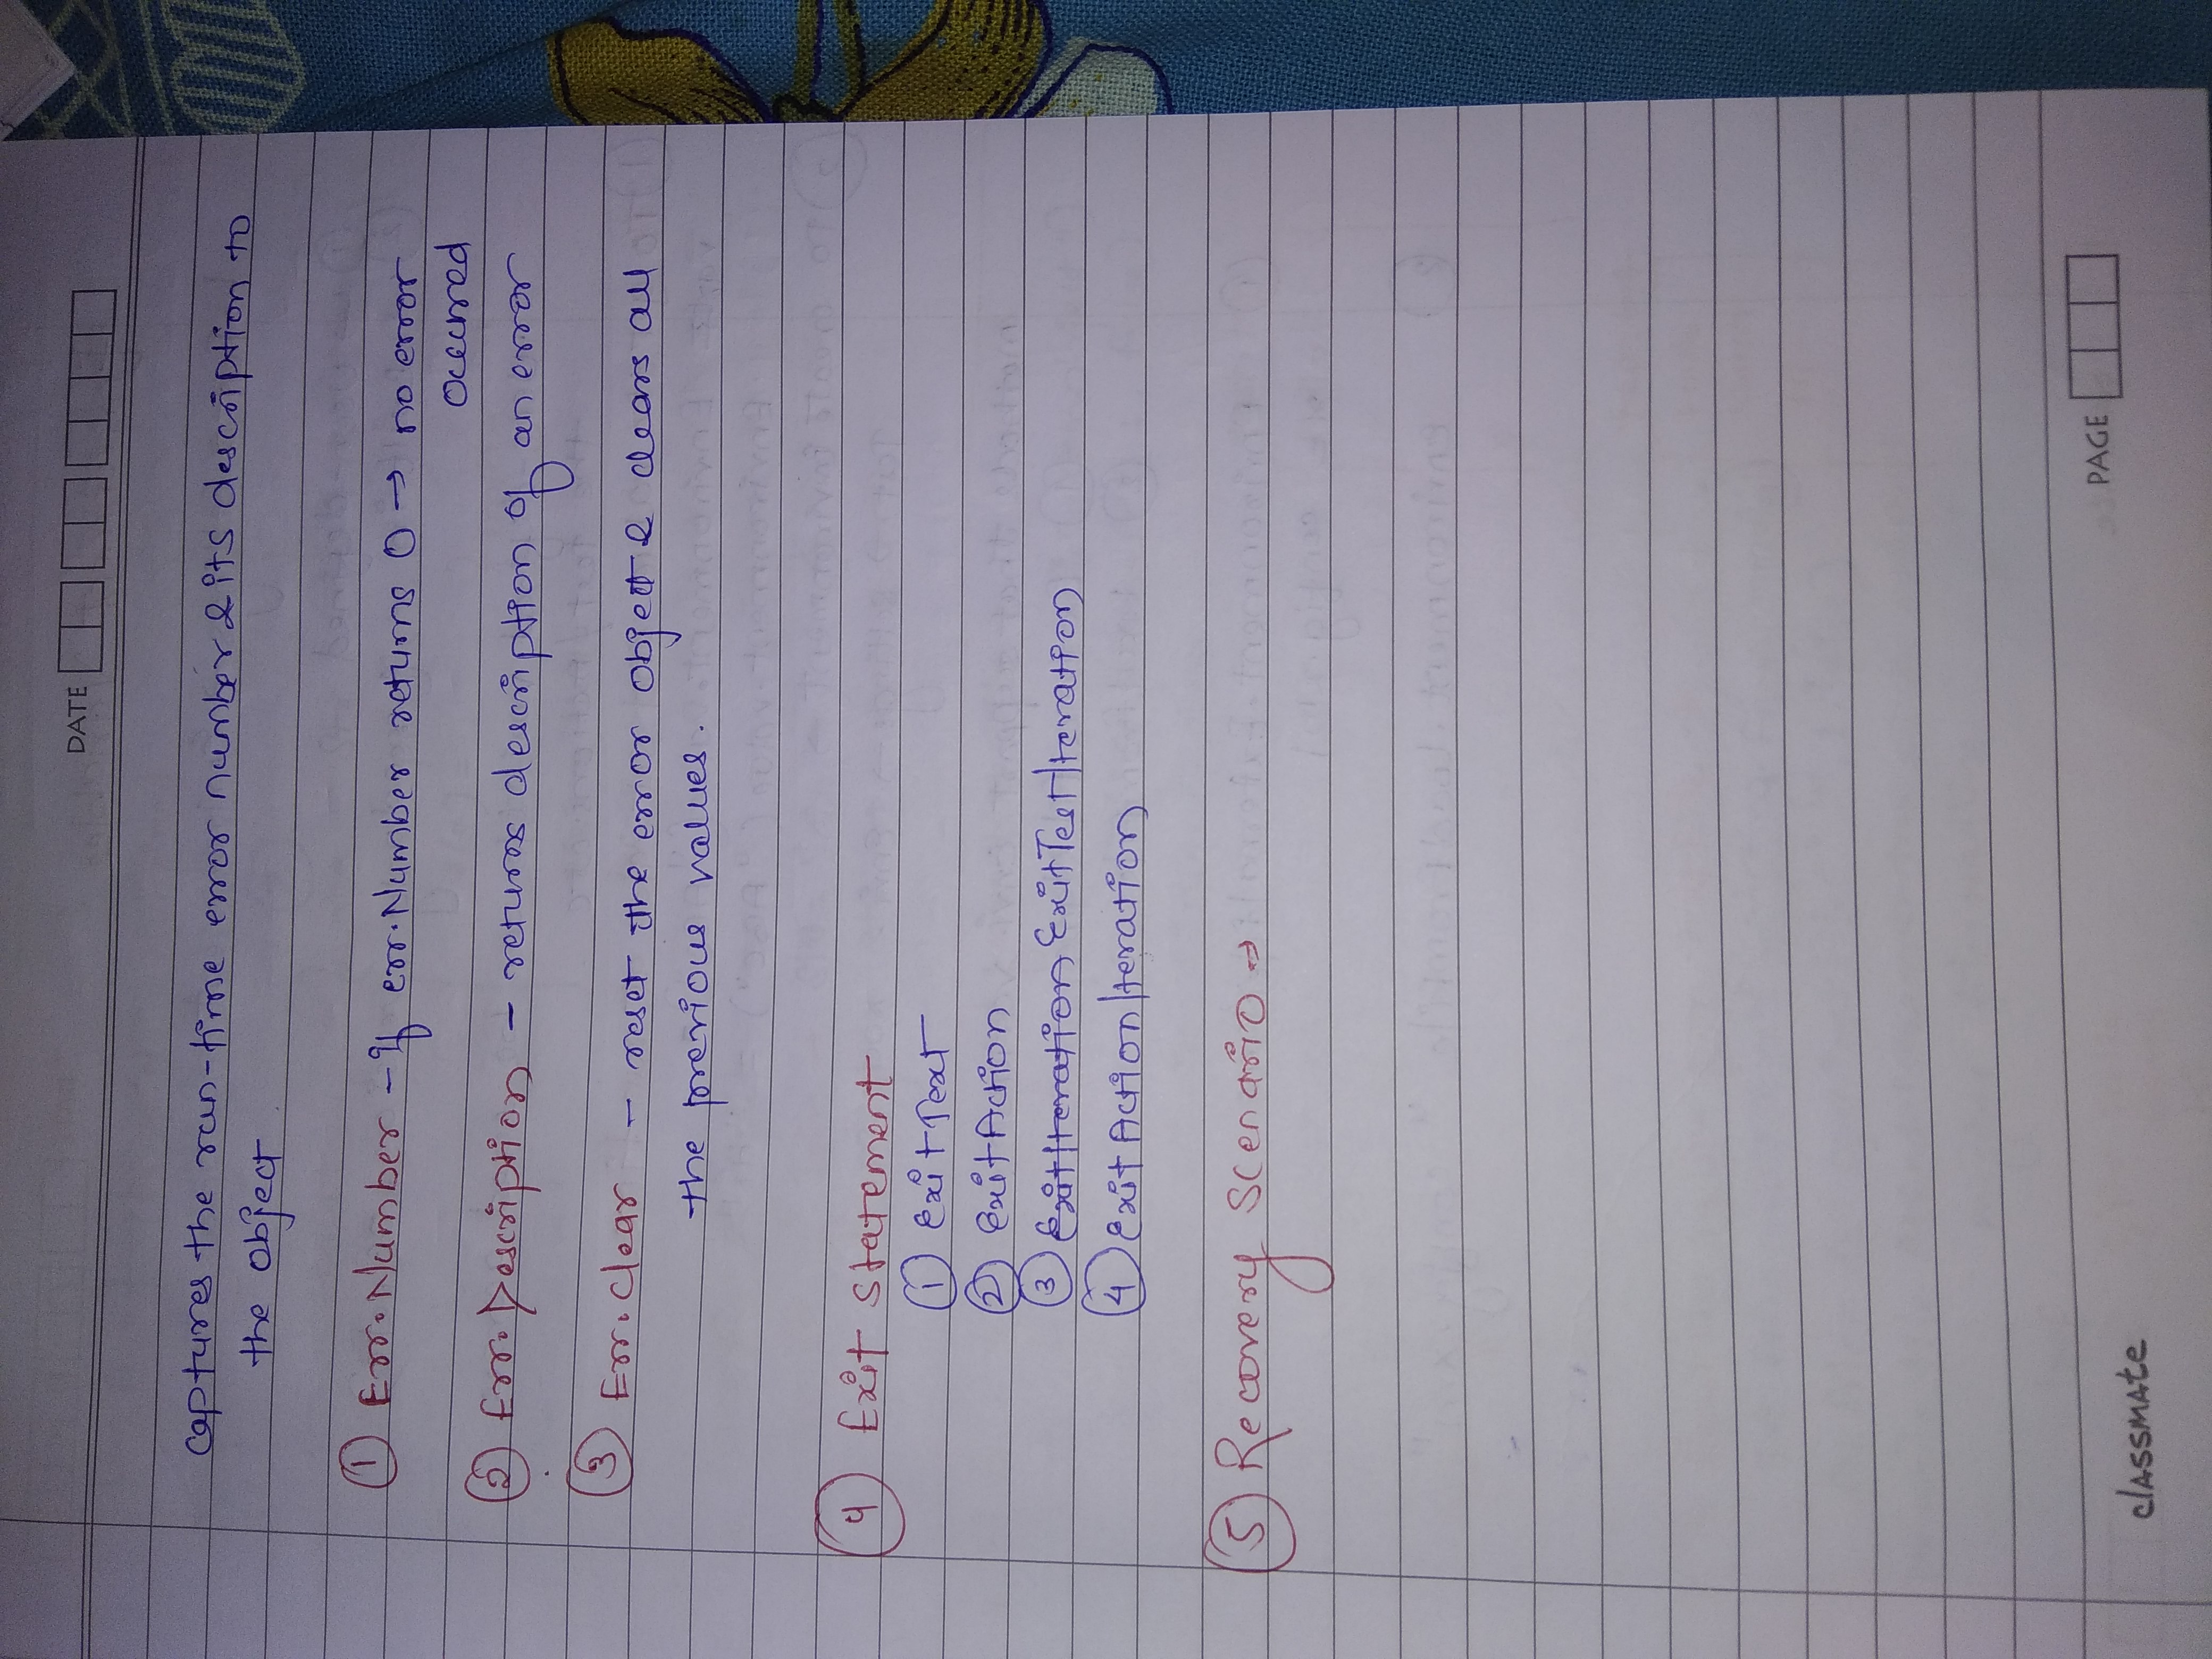 DATE
captures the run-time error number & its description to
the object
① Err.Number - if err.Number returns 0 → no error
occurred
② Err.Description - returns description of an error
③ Err.Clear - reset the error object & clears all
the previous values.
④ Exit statement
① ExitTest
② ExitAction
③ ExitIteration ExitTestIteration
④ ExitActionIteration
⑤ Recovery Scenario →
classmate
PAGE